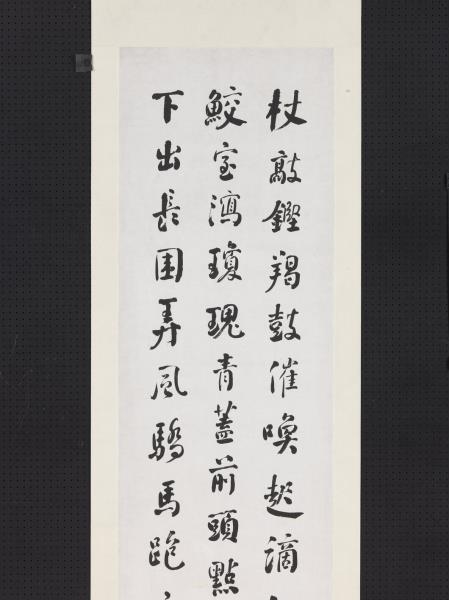 杖敲鏗羯鼓催喚起謫
鮫室瀉瓊瑰青蓋前頭點
下出長圍弄風驕馬跑